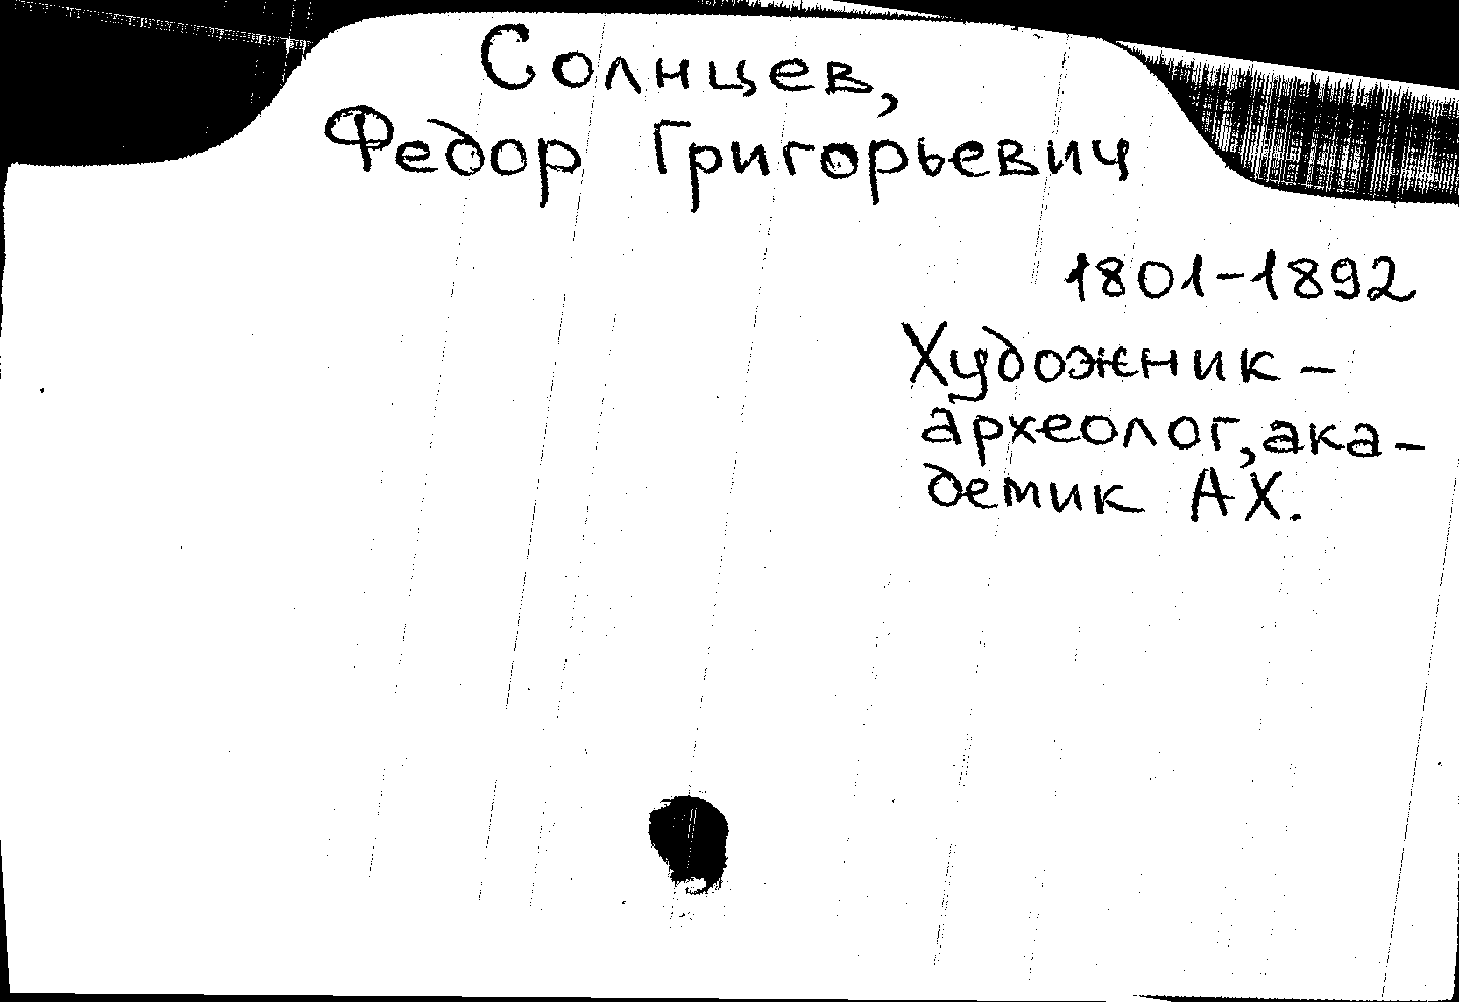 Солнцев,
Федор Григорьевич
1801-1892
Художник -
археолог, ака-
демик АХ.